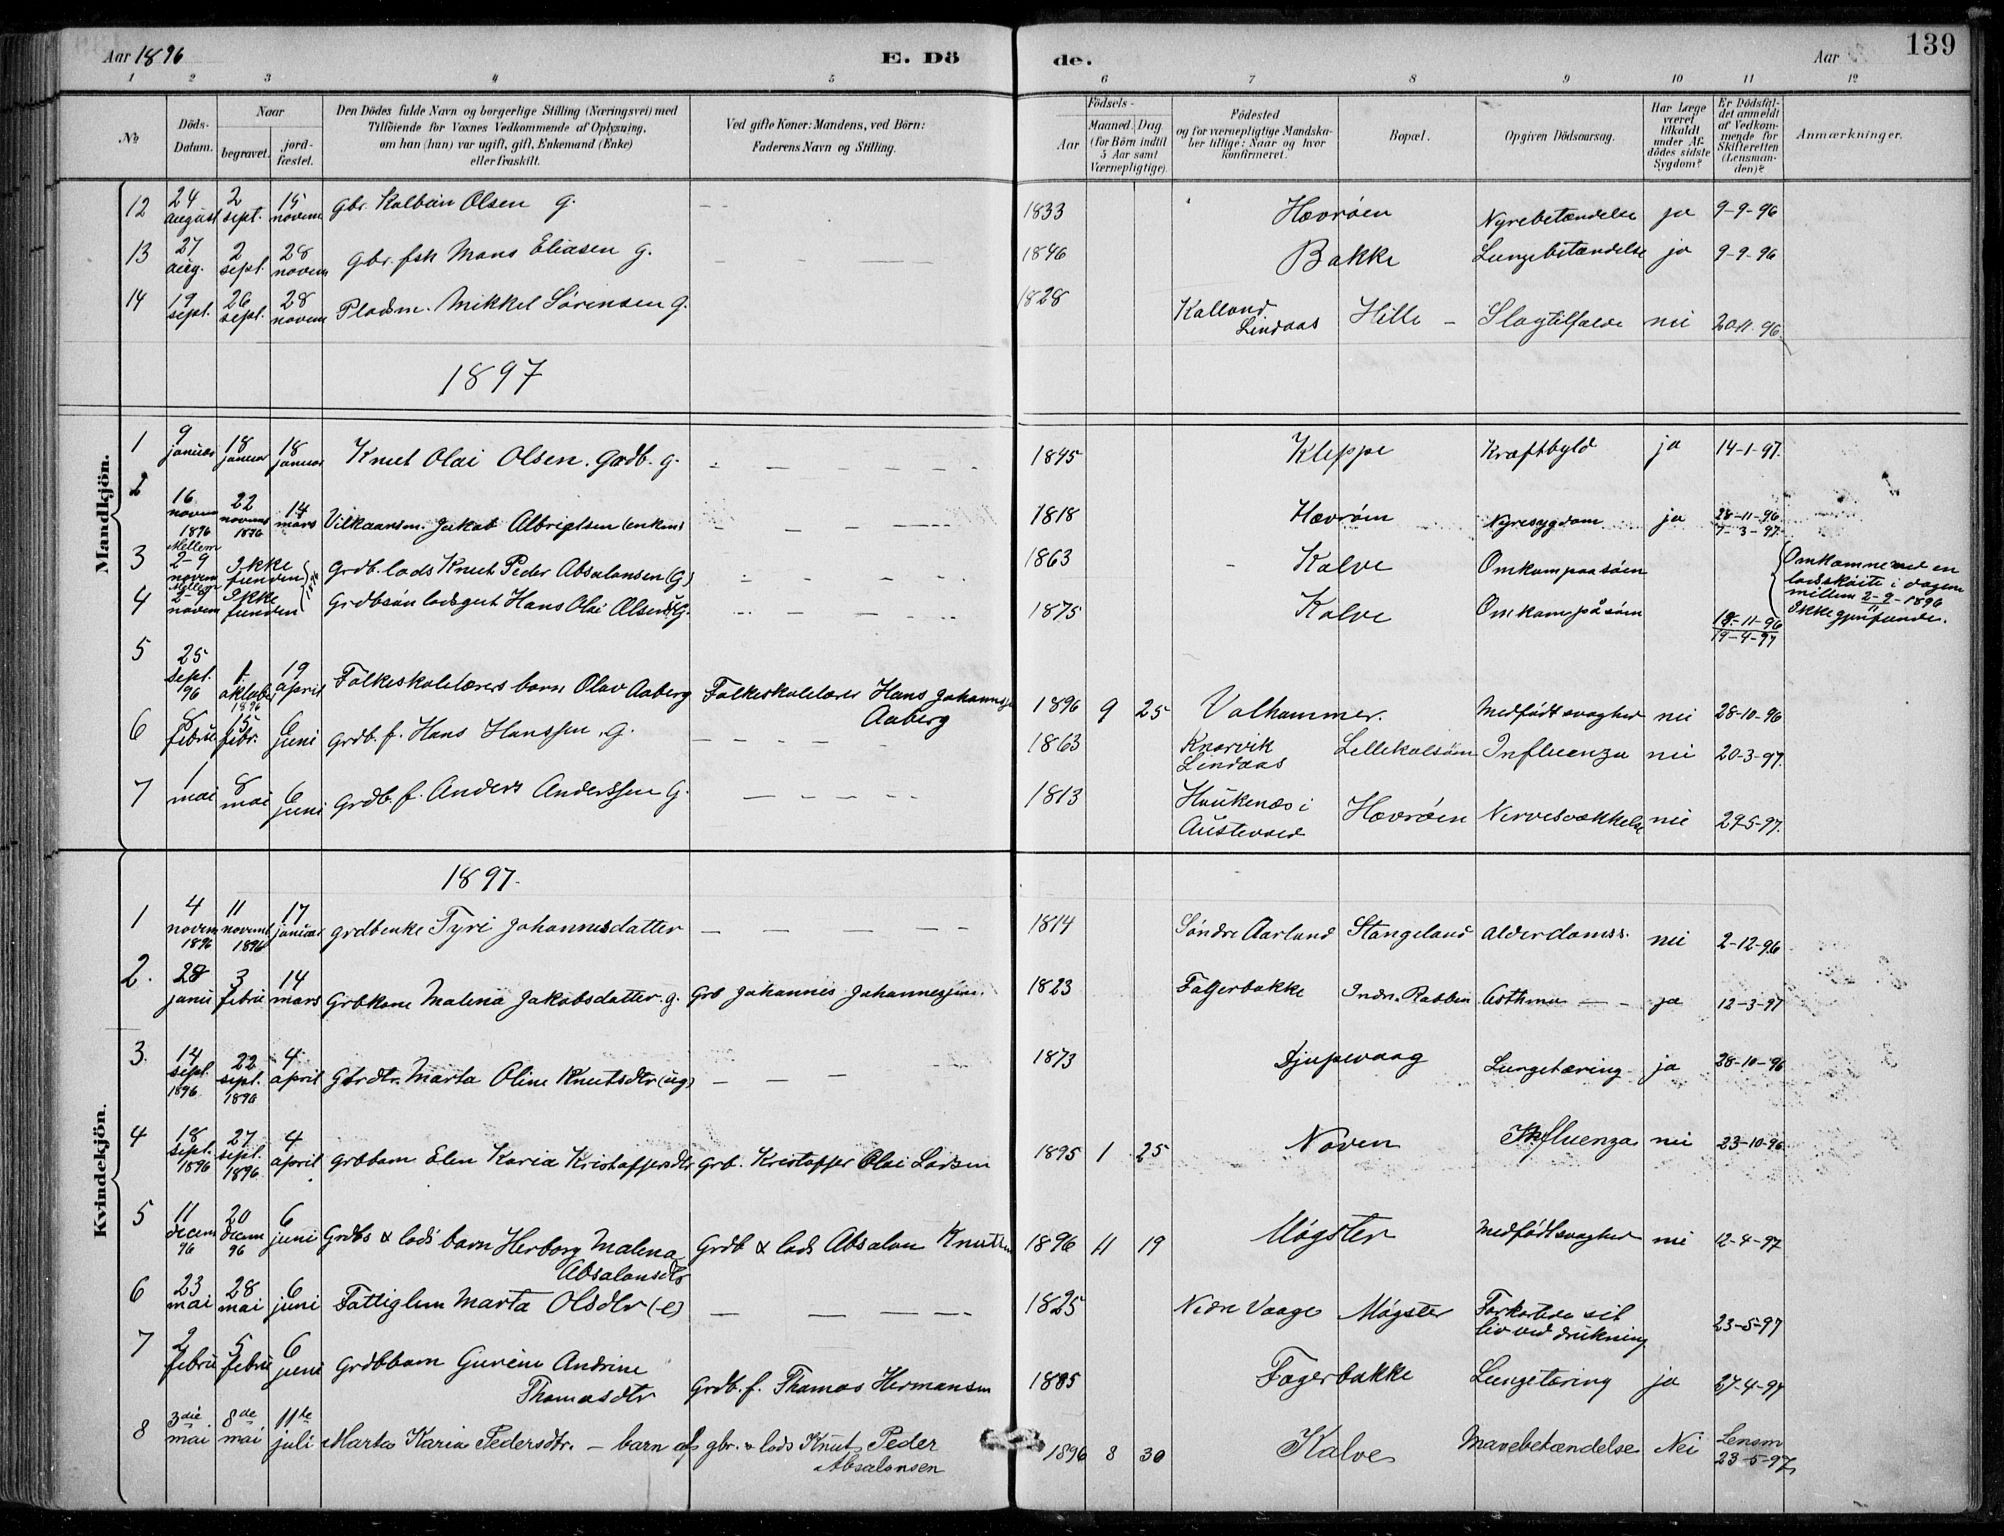 Aar 1896
E. Dö
de.
Aar
139
1 2 3 4 5 6 7 8 9 10 11 12
No
Döds-Datum.
Naar
begravet.
jord-fæstet.
Den Dödes fulde Navn og borgerlige Stilling (Næringsvei) med
Tilföiende for Voxnes Vedkommende af Oplysning,
om han (hun) var ugift, gift, Enkemand (Enke)
eller fraskilt.
Ved gifte Koner: Mandens, ved Börn:
Faderens Navn og Stilling.
Födsels-
Aar
Maaned. Dag
(for Börn indtil
5 Aar samt
Værnepligtige)
Födested
og for værnepligtige Mandska-
ber tillige: Naar og hvor
konfirmeret.
Bopæl.
Opgiven Dödsaarsag.
Har Læge
været
tilkaldt
under Af-
dödes sidste
Sygdom?
Er Dödsfal-
det anmeldt
af Vedkom-
mende for
Skifteretten
(Lensman-
den)?
Anmærkninger.
12 24 august 2 sept. 15 novem gbr. Kolbein Olsen g. 1833 Hevröen Nyrebetændelse ja 9-9-96
13 27 aug. 2 sept. 28 novem gbr. fsk Mons Eliasen g. 1846 Bakke Lungebetændelse ja 9-9-96
14 19 sept. 26 sept. 28 novem Pladsm. Mikkel Sörensen g. 1828 Kalland Lindaas Hille Slagtilfælde nei 20-11-96.
1897
Mandkjön.
1 9 januar 18 januar 18 januar Knut Olai Olsen. Grdb. g. 1845 Kleppe Kræftbyld ja 14-1-97.
2 16 novem 1896 22 novemb 1896 14 mars Vilkaarsm. Jakob Albrigtsen (enkem) 1818 Hevröen Nyresygdom ja 28-11-96 7-3-97.
3 Mellem 2-9 novem Ikke funden Grdb. lods Knut Peder Absalonsen (G) 1863 Kalve Omkom paa söen
4 Mellem 2-9 novem Ikke funden Grdbsön lodsgut Hans Olai Olsen U.G. 1875 Kalve Omkom på söen 18-11-96 19-4-97
Omkomne ved en
lodsköite i dagene
mellem 2-9/11-1896
Ikke gjenfundne.
5 25 sept. 96 1. oktober 1896 19 april Folkeskolelærers barn Olav Aaberg Folkeskolelærer Hans Johannesen Aaberg 1896 9 25 Valhammer. Medfödt svaghed nei 28-10-96
6 8 febru 15 febr. 6 juni grdb. f. Hans Hanssen. G. 1863 Knarvik Lindaas Lillekalsöen Influenza nei 20-3-97.
7 1 mai 8 mai 6 juni Grdb. f. Anders Anderssen G. 1813 Haukenæs i Austevold Hevröen Nervesvækkelse nei 29-5-97.
1897.
Kvindekjön.
1 4 novem 1896 11 novemb 1896 17 januar grdbenke Tyri Johannesdatter 1814 Söndre Aarland Stangeland Alderdomss. nei 2-12-96
2. 28 janu 3 febru 14 mars Grbkone Malena Jakobsdatter. g. Grb Johannes Johannessen. 1823 Fagerbakke Indre Rabben Asthma ja 12-3-97
3. 14 sept. 1896 22 sept. 1896 4 april Gbrdtr. Marta Oline Knutsdtr (ug) 1873 Djupevaag Lungetæring ja 28-10-96
4 18 sept. 1896 27 sept. 1896 4 april grbbarn Elen Karia Kristoffersdtr Grb. Kristoffer Olai Larsen 1895 1 25 Noven Influenza nei 23-10-96
5 11 decem 96 20 decem 96 6 juni Grdbs & lods barn Herborg Malena Absalonsdtr Grdb & lods Absalon Knutsen 1896 11 19 Mögster Medfödt svaghed nei 12-4-97
6 23 mai 28 mai 6 juni Fattiglem Marta Olsdtr (e) 1825 Nedre Vaage Mögster Forkortede sit liv ved drukning 23-5-97
7 2 febru 5 febru 6 juni Grdbbarn Gurine Andrine Thomasdtr Grdb. f. Thomas Hermansen 1885 Fagerbakke Lungetæring ja 27-4-97
8 3die mai 8de mai 11te juli Marta Karia Pedersdtr. – barn af gbr. & lods Knut Peder Absalonsen 1896 8 30 Kalve Mavebetændelse Nei Lensm 23-5-97